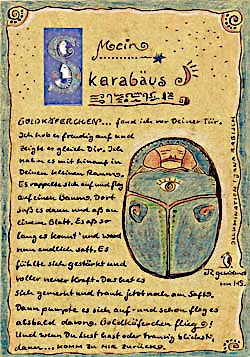 Mein
Skarabäus
GOLDKÄFERCHEN?... fand ich vor Deiner Tür.
Ich hob es freudig auf und
zeigte es gleich Dir. Ich
nahm es mit hinauf in
Deinen kleinen Raum.
Es rappelte sich auf und flog
auf einen Baum. Dort
saß es dann und aß an
einem Blatt. Es aß so
lang es konnt' und ward
nun endlich satt. Es
fühlt sich gestärkt und
voller neuer Kraft. Das hat es
sich gemerkt und trank jetzt noch am Saft.
Dann pumpte es sich auf - und schon flog es
alsbald davon. Goldkäferchen flieg!
Und wenn Du Lust hast oder traurig bliebst,
dann... komm zu mir zurück.